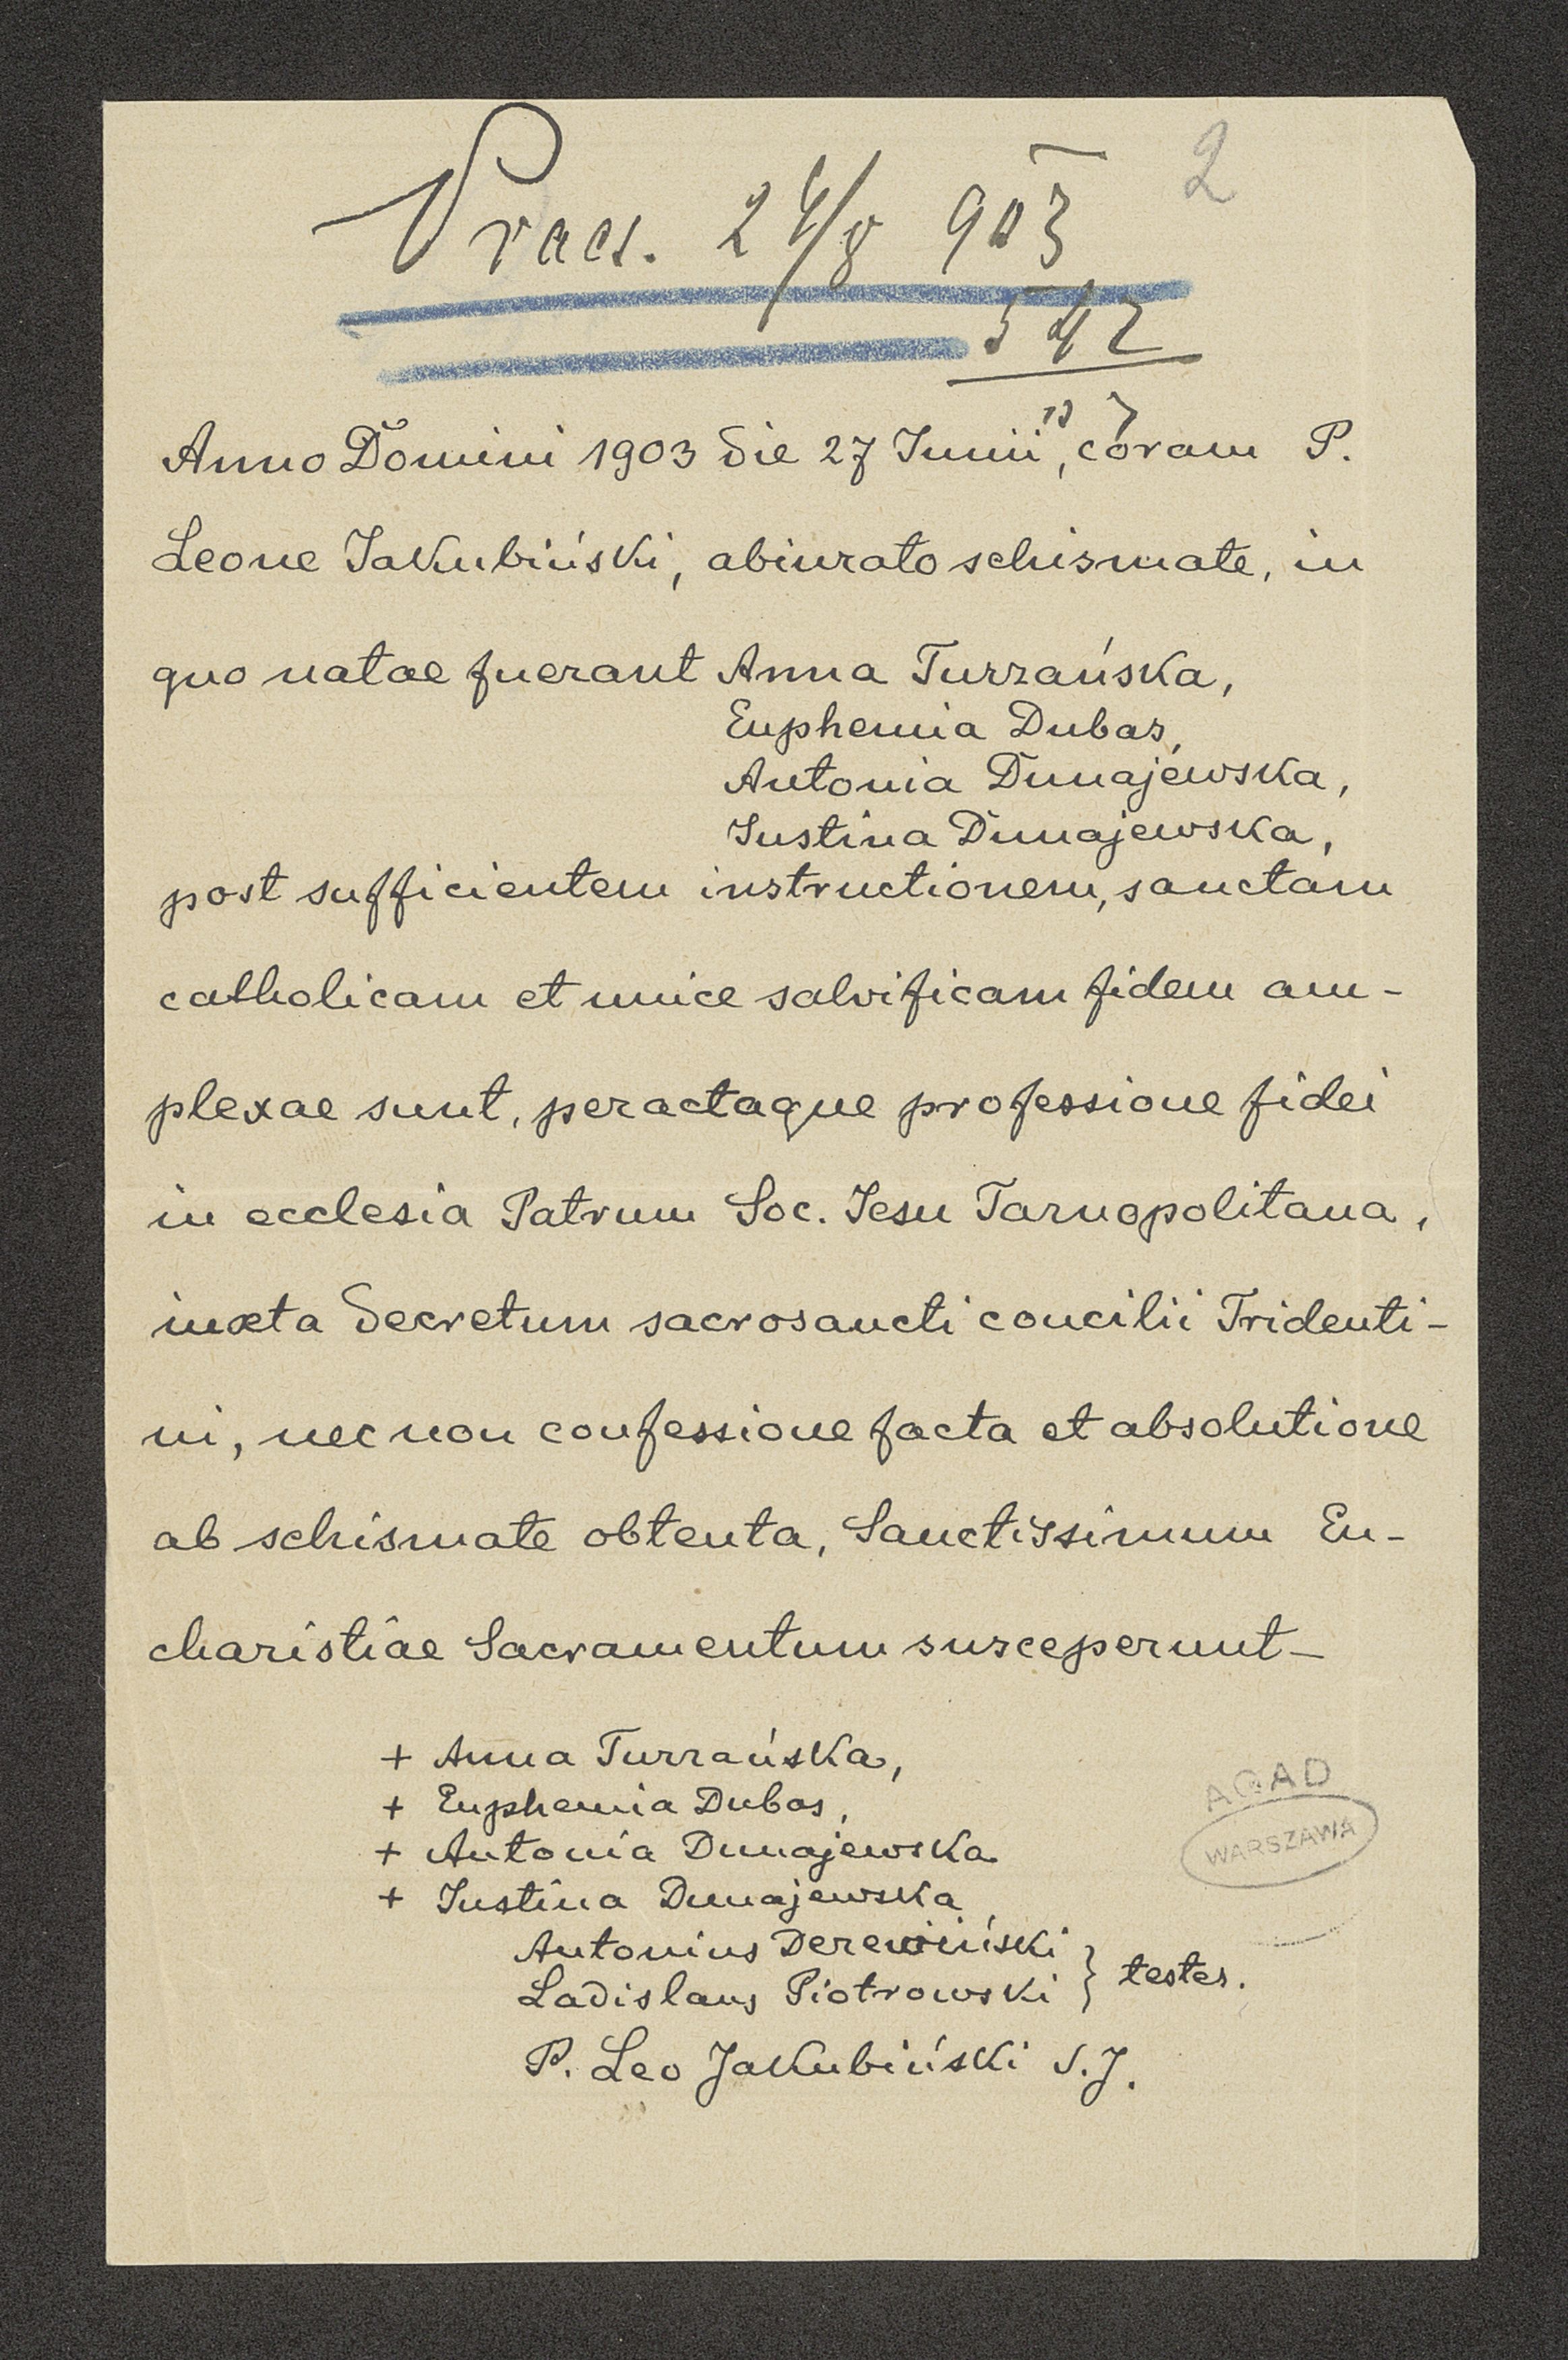 Praes. 24/8 903
2
542
Anno Domini 1903 die 27 Iunii, coram P.
Leone Jakubiński, abiurato schismate, in
quo natae fuerant Anna Turzańska,
Euphemia Dubas,
Antonia Dunajewska,
Iustina Dunajewska,
post sufficientem instructionem, sanctam
catholicam et unice salvificam fidem am-
plexae sunt, peractaque professione fidei
in ecclesia Patrum Soc. Iesu Tarnopolitana,
iuxta decretum sacrosancti concilii Tridenti-
ni, nec non confessione facta et absolutione
ab schismate obtenta, Sanctissimum Eu-
charistiae Sacramentum susceperunt-
+ Anna Turzańska,
+ Euphemia Dubas,
+ Antonia Dunajewska
+ Iustina Dunajewska,
Antonius Derewiński
Ladislaus Piotrowski } testes.
P. Leo Jakubiński S.J.
AGAD
WARSZAWA